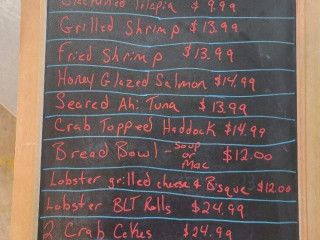 Blackened Tilapia $9.99
Grilled Shrimp $13.99
Fried Shrimp $13.99
Honey Glazed Salmon $14.99
Seared Ahi Tuna $13.99
Crab Topped Haddock $14.99
Bread Bowl - Soup or Mac $12.00
Lobster grilled cheese & Bisque - $12.00
Lobster BLT Rolls $24.99
2 Crab Cakes $24.99